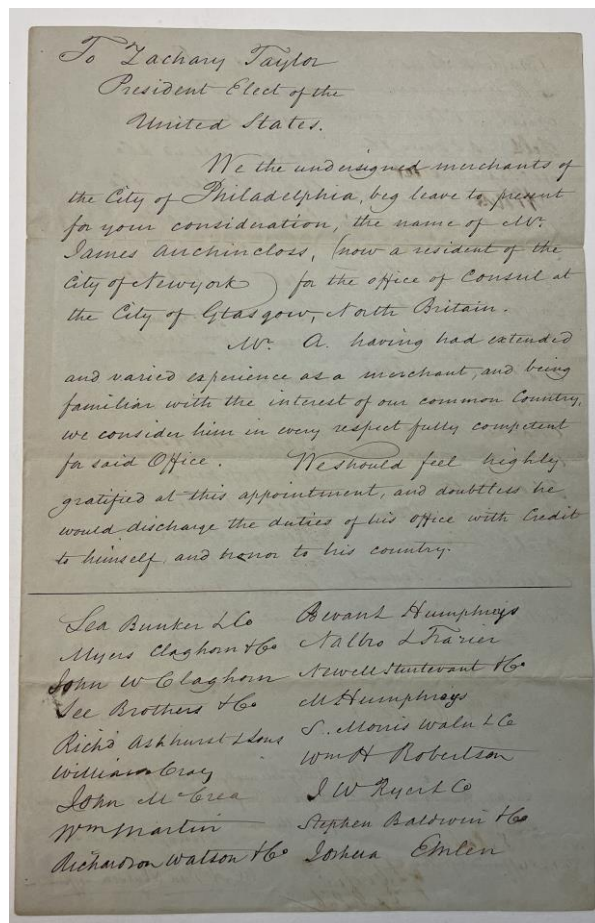 To Zachary Taylor
President Elect of the
United States.
We the undersigned merchants of
the City of Philadelphia, beg leave to present
for your consideration, the name of Mr.
James Auchincloss, (now a resident of the
City of Newyork) for the office of Consul at
the City of Glasgow, North Britain.
Mr. A. having had extended
and varied experience as a merchant, and being
familiar with the interest of our common Country,
we consider him in every respect fully competent
for said Office. We should feel highly
gratified at this appointment, and doubtless he
would discharge the duties of his office with Credit
to himself, and honor to his country.
Lea Bunker & Co
Myers Claghorn & Co
John W Claghorn
Lee Brothers & Co
Richd Ashhurst & Sons
William Cray
John McCrea
Wm Martin
Richardson Watson & Co
Bevan & Humphreys
Nalbro & Frazier
Newell Sturtevant & Co
M Humphreys
S. Morris Waln & Co
Wm H Robertson
Stephen Baldwin & Co
Joshua Emlen